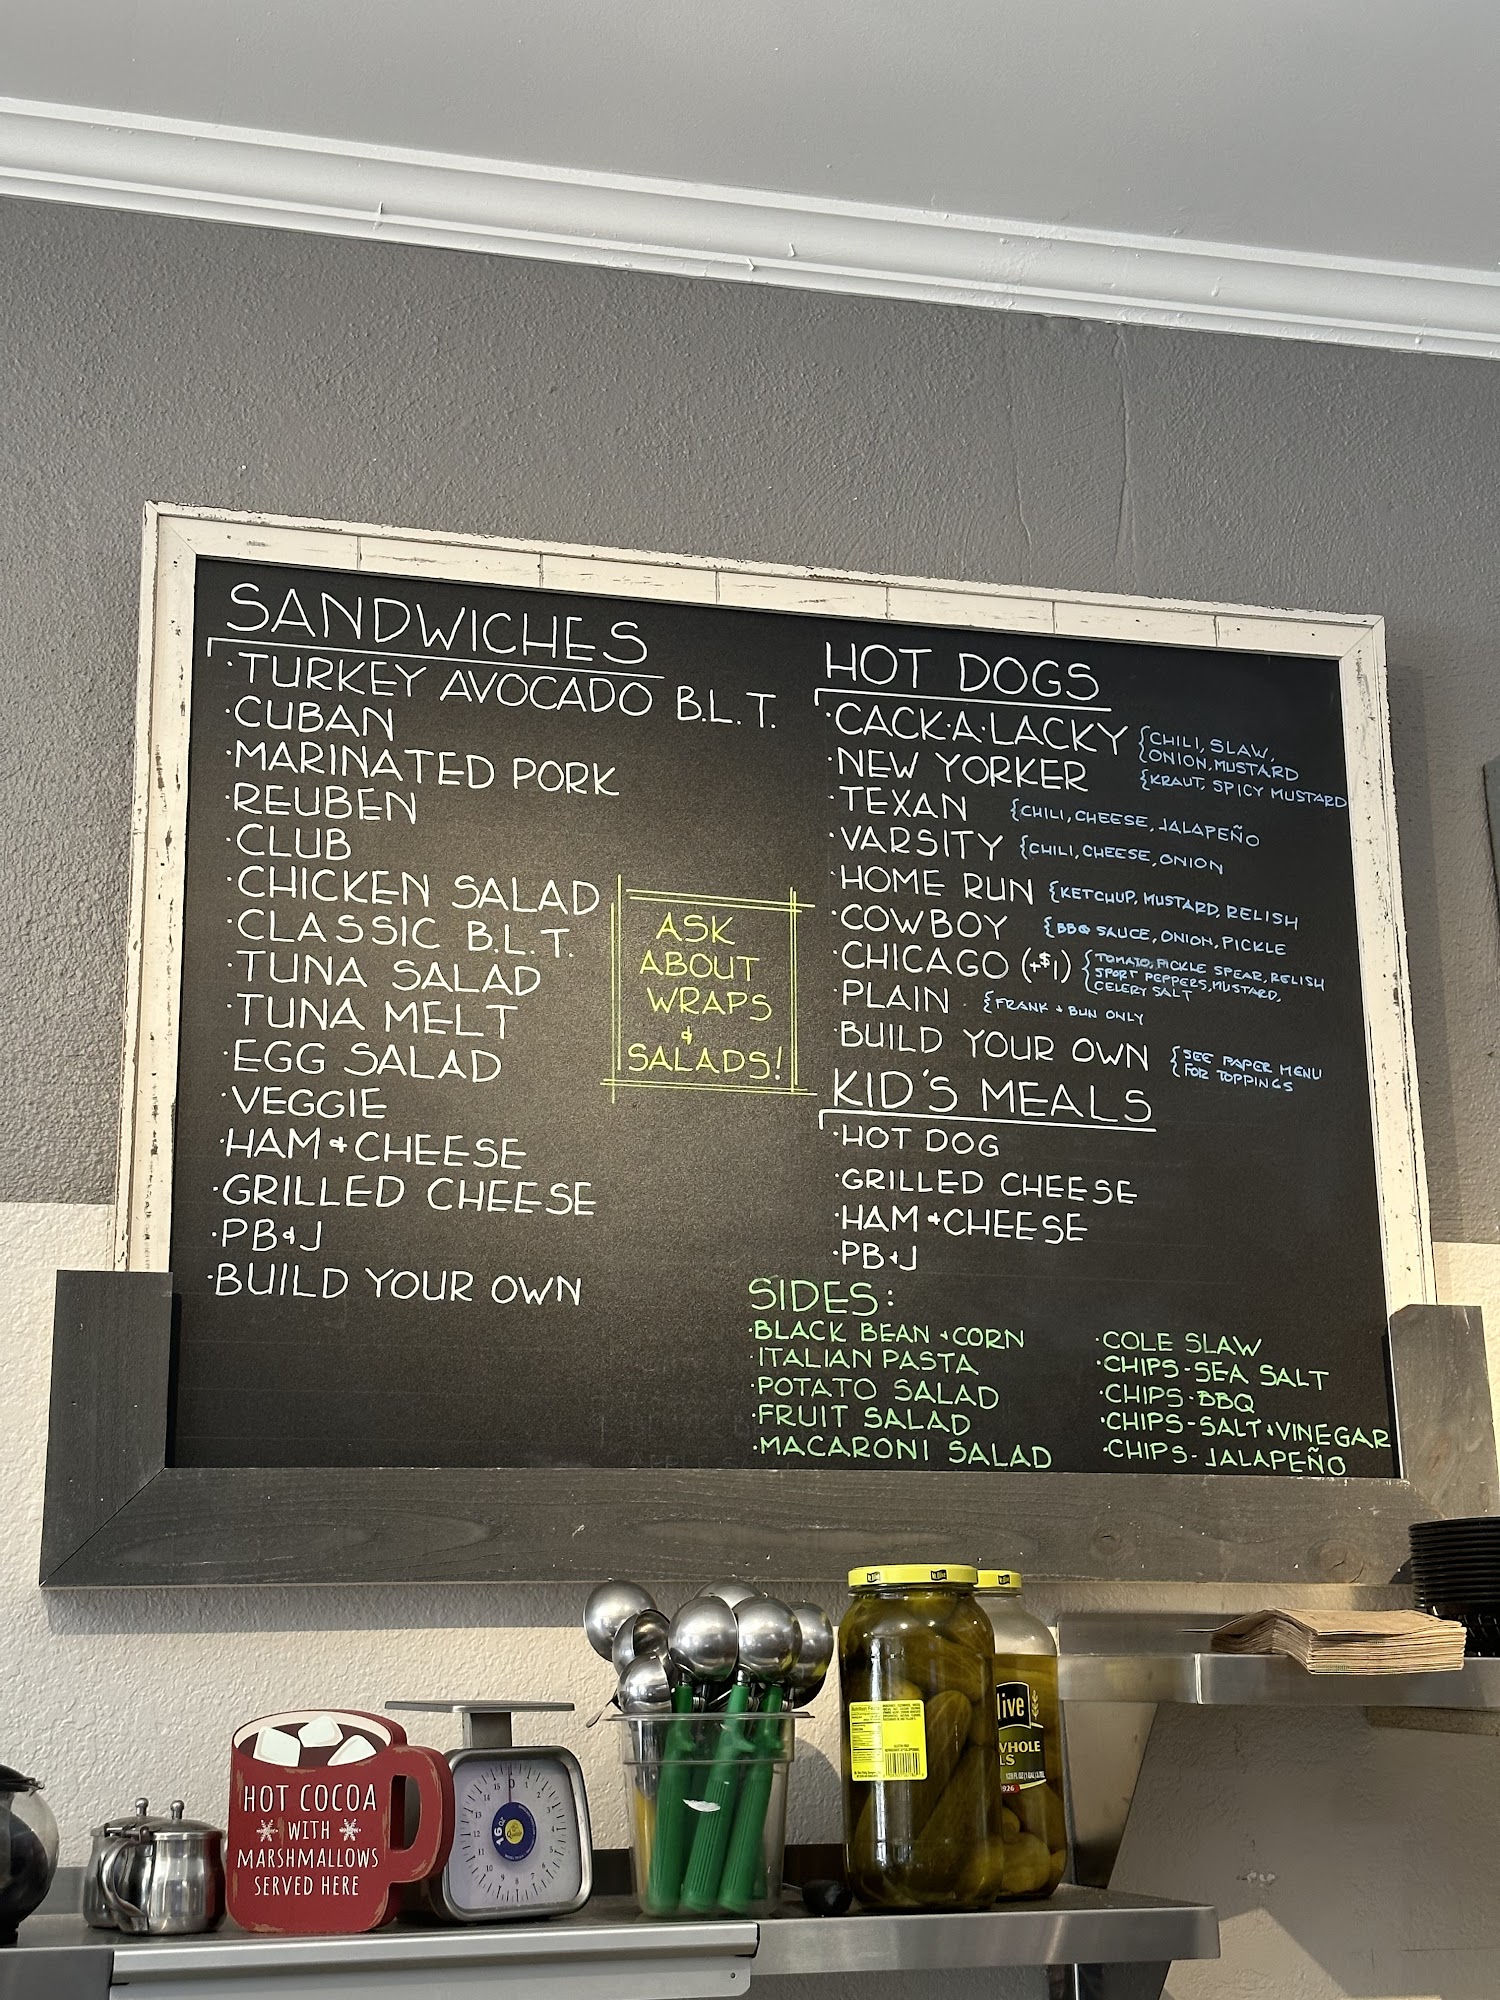 SANDWICHES
·TURKEY AVOCADO B.L.T.
·CUBAN
·MARINATED PORK
·REUBEN
·CLUB
·CHICKEN SALAD
·CLASSIC B.L.T.
·TUNA SALAD
·TUNA MELT
·EGG SALAD
·VEGGIE
·HAM & CHEESE
·GRILLED CHEESE
·PB&J
·BUILD YOUR OWN
ASK
ABOUT
WRAPS
&
SALADS!
HOT DOGS
·CACK·A·LACKY {CHILI, SLAW,
ONION, MUSTARD
·NEW YORKER {KRAUT, SPICY MUSTARD
·TEXAN {CHILI, CHEESE, JALAPEÑO
·VARSITY {CHILI, CHEESE, ONION
·HOME RUN {KETCHUP, MUSTARD, RELISH
·COWBOY {BBQ SAUCE, ONION, PICKLE
·CHICAGO (+$1) {TOMATO, PICKLE SPEAR, RELISH
SPORT PEPPERS, MUSTARD,
CELERY SALT
·PLAIN {FRANK + BUN ONLY
·BUILD YOUR OWN {SEE PAPER MENU
FOR TOPPINGS
KID'S MEALS
·HOT DOG
·GRILLED CHEESE
·HAM & CHEESE
·PB&J
SIDES:
·BLACK BEAN & CORN
·ITALIAN PASTA
·POTATO SALAD
·FRUIT SALAD
·MACARONI SALAD
·COLE SLAW
·CHIPS-SEA SALT
·CHIPS-BBQ
·CHIPS-SALT & VINEGAR
·CHIPS-JALAPEÑO
HOT COCOA
WITH
MARSHMALLOWS
SERVED HERE
Nutrition Facts
live
WHOLE
LS
1926